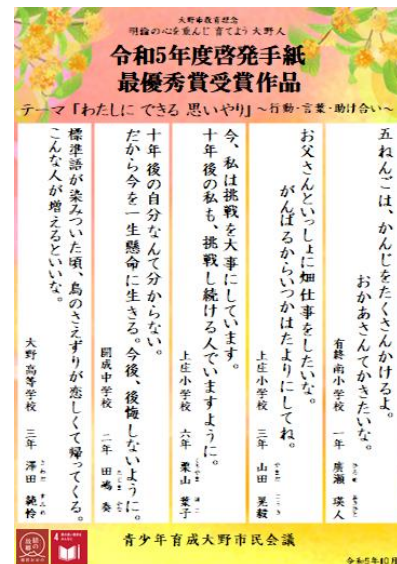 大野市教育理念
明倫の心を重んじ育てよう大野人
令和5年度啓発手紙
最優秀賞受賞作品
テーマ「わたしに できる 思いやり」～行動・言葉・助け合い～
五ねんごは、かんじをたくさんかけるよ。
おかあさんてかきたいな。
有終南小学校 一年 廣瀬 瑛人
お父さんといっしょに畑仕事をしたいな。
がんばるからいつかはたよりにしてね。
上庄小学校 三年 山田 晃毅
今、私は挑戦を大事にしています。
十年後の私も、挑戦し続ける人でいますように。
上庄小学校 六年 栗山 葉子
十年後の自分なんて分からない。
だから今を一生懸命に生きる。今後、後悔しないように。
開成中学校 二年 田嶋 奏
標準語が染みついた頃、鳥のさえずりが恋しくて帰ってくる。
こんな人が増えるといいな。
大野高等学校 三年 澤田 純怜
青少年育成大野市民会議
令和5年10月